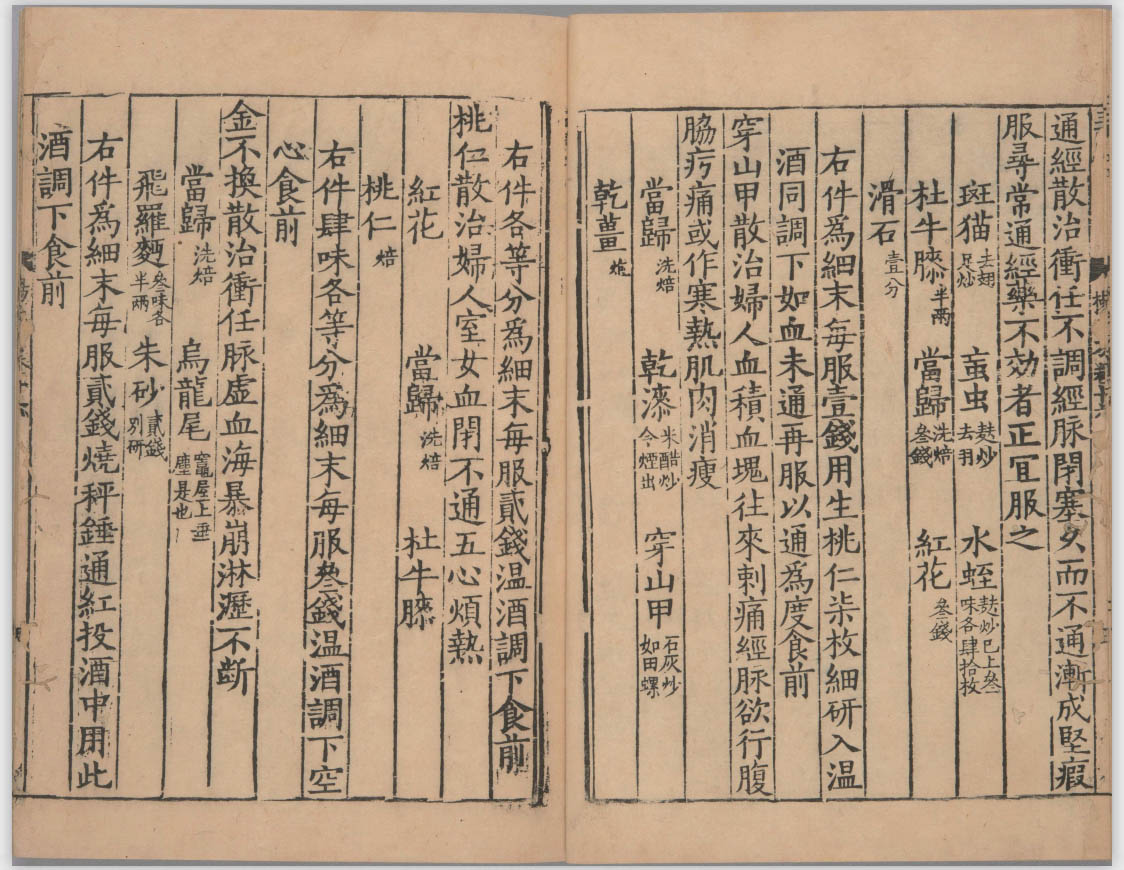 通經散治衝任不調經脉閉塞久而不通漸成堅瘕
服尋常通經藥不效者正宜服之
斑猫去翅足炒 䖟虫麸炒去羽 水蛭麸炒已上叄味各肆拾枚
杜牛膝半兩 當歸洗焙叄錢 紅花叄錢
滑石壹分
右件爲細末每服壹錢用生桃仁柒枚細研入温
酒同調下如血未通再服以通爲度食前
穿山甲散治婦人血積血塊往來刺痛經脉欲行腹
脇㽲痛或作寒熱肌肉消瘦
當歸洗焙 乾漆米醋炒令煙出 穿山甲石灰炒如田螺
乾薑炮
右件各等分爲細末每服貳錢温酒調下食前
桃仁散治婦人室女血閉不通五心煩熱
紅花 當歸洗焙 杜牛膝
桃仁焙
右件肆味各等分爲細末每服叄錢温酒調下空
心食前
金不換散治衝任脉虚血海暴崩淋瀝不斷
當歸洗焙 烏龍尾竈屋上垂塵是也
飛羅麵叄味各半兩 朱砂貳錢別研
右件爲細末每服貳錢燒秤錘通紅投酒中用此
酒調下食前